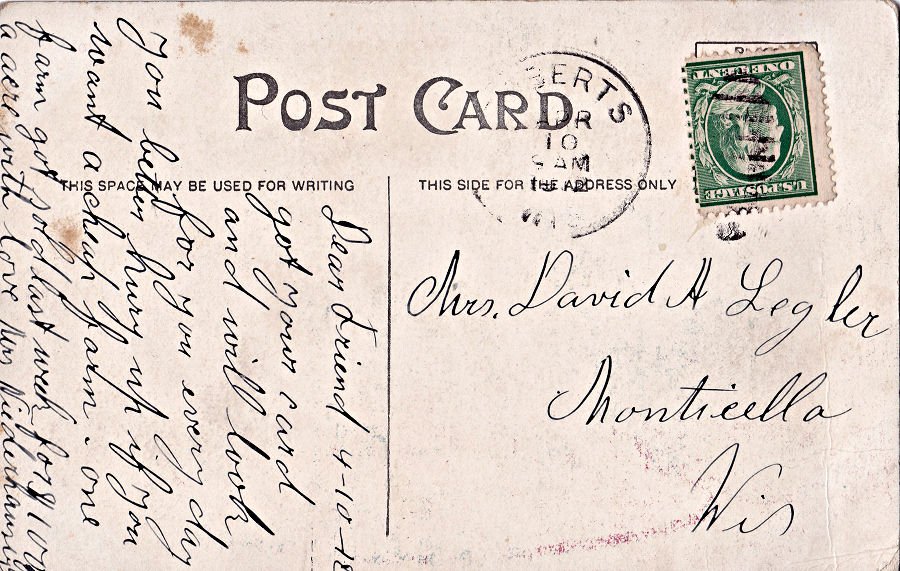 POST CARD
THIS SPACE MAY BE USED FOR WRITING
THIS SIDE FOR THE ADDRESS ONLY
BERTS
10
AM
WIS
ONE CENT
U.S. POSTAGE
Mrs. David A Legler
Monticella
Wis
Dear Friend 4-10-12
got your card
and will look
for you every day
You better hurry up if you
want a cheap farm. one
farm got sold last week for $100
a acre with love Mrs